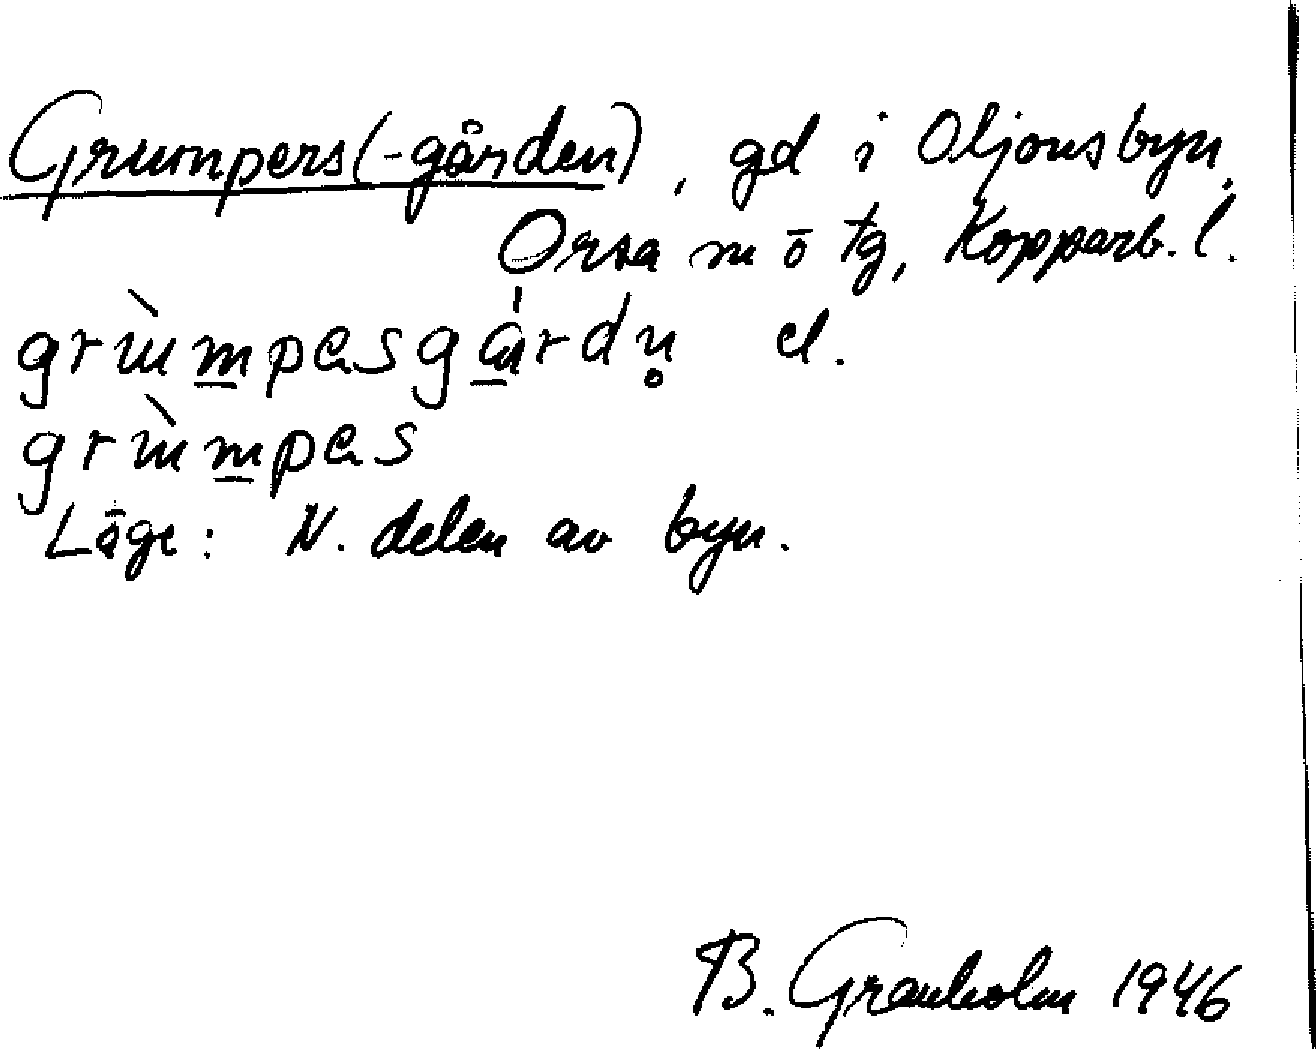 Grumpers(-gården), gd i Oljonsbyn,
Orsa m ö tg, Kopparb. l.
grùmpɐsgárdn̥ el.
grùmpɐs
Läge: N. delen av byn.
B. Granholm 1946